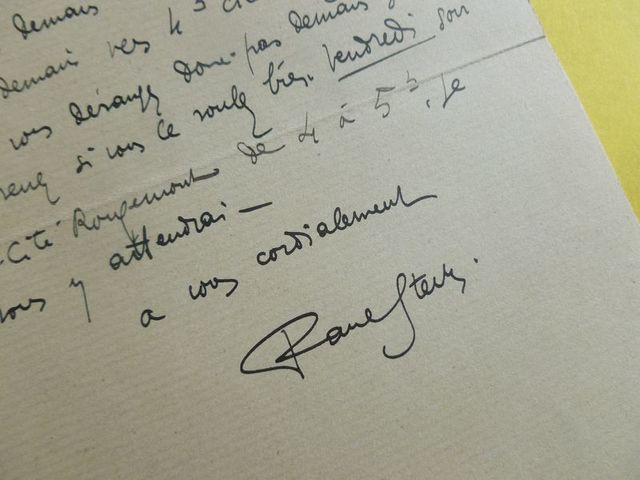 demain
demain vers 4h
vous dérangez donc pas demain
si vous le voulez bien. Vendredi soir
Cité Rougemont de 4 à 5h. Je
vous y attendrai —
a vous cordialement